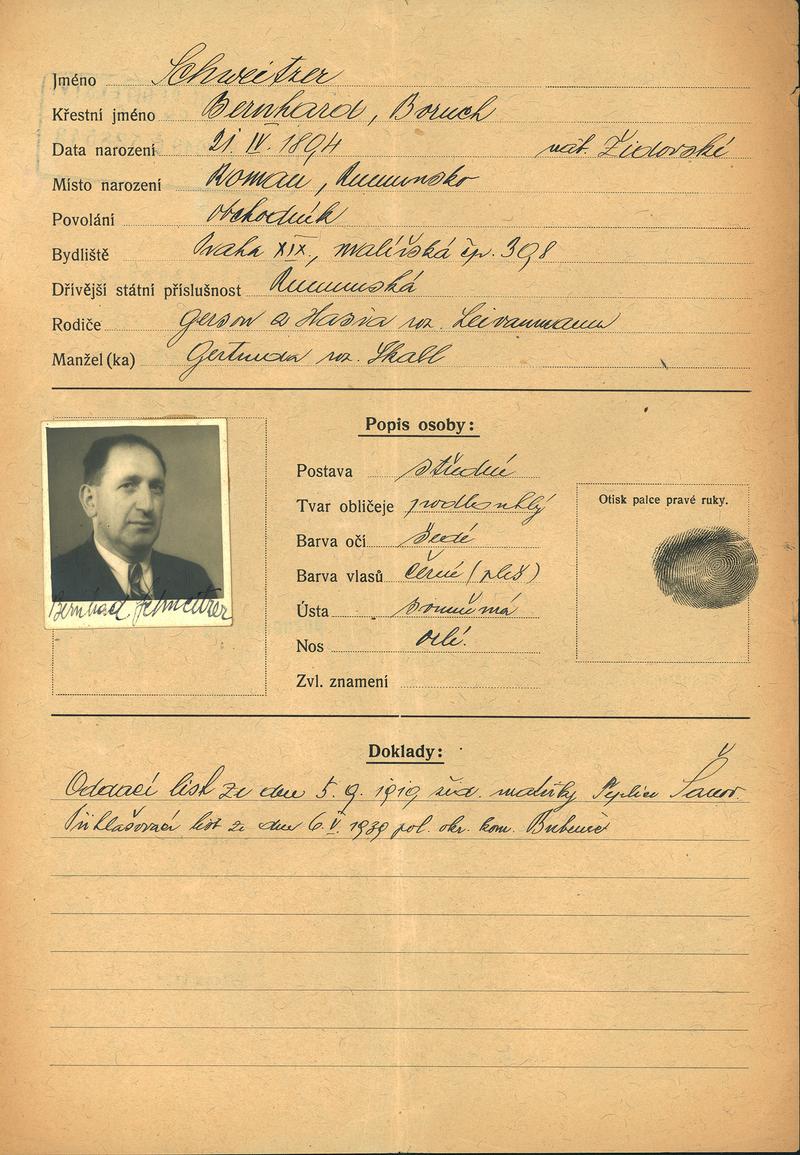 Jméno Schweitzer
Křestní jméno Bernhard, Boruch
Data narození 21. IV. 1894 náb. Židovské
Místo narození Roman, Rumunsko
Povolání obchodník
Bydliště Praha XIX, malířská čp. 398
Dřívější státní příslušnost Rumunská
Rodiče Gerson a Hasia roz.
Manžel (ka) Gertruda roz. Skall
Popis osoby:
Postava střední
Tvar obličeje podlouhlý
Barva očí šedé
Barva vlasů černé (pleš)
Ústa souměrná
Nos orlí.
Zvl. znamení
Otisk palce pravé ruky.
Bernhard Schweitzer
Doklady:
Oddací list ze dne 5. 9. 1919 žid. matriky Teplice Šanov.
Přihlašovací list ze dne 6. V. 1939 pol. okr. kom. Bubeneč